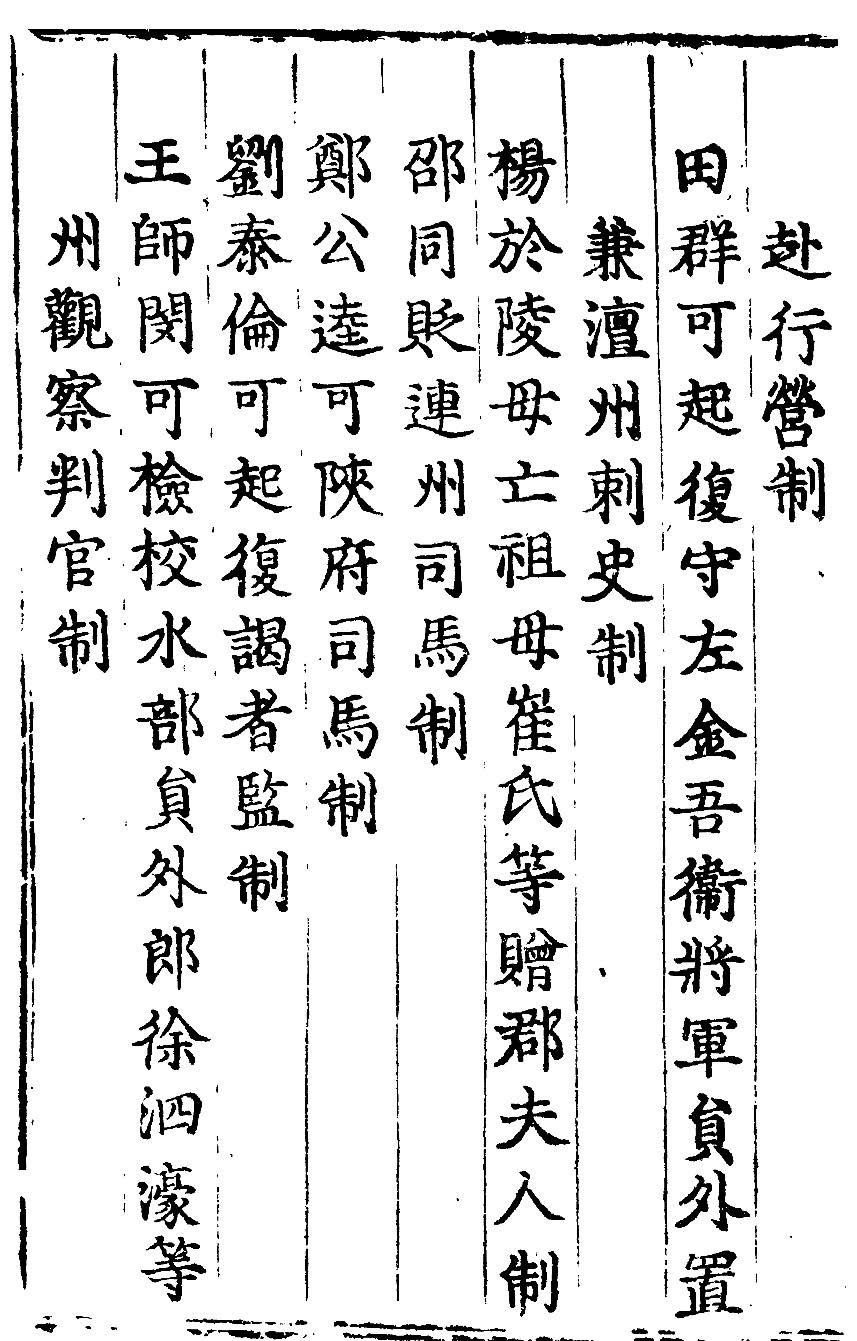 赴行營制
田群可起復守左金吾衛將軍貟外置
兼澶州刺史制
楊於陵母亡祖母崔氏等贈郡夫人制
邵同貶連州司馬制
鄭公逵可陝府司馬制
劉泰倫可起復謁者監制
王師閔可檢校水部貟外郎徐泗濠等
州觀察判官制